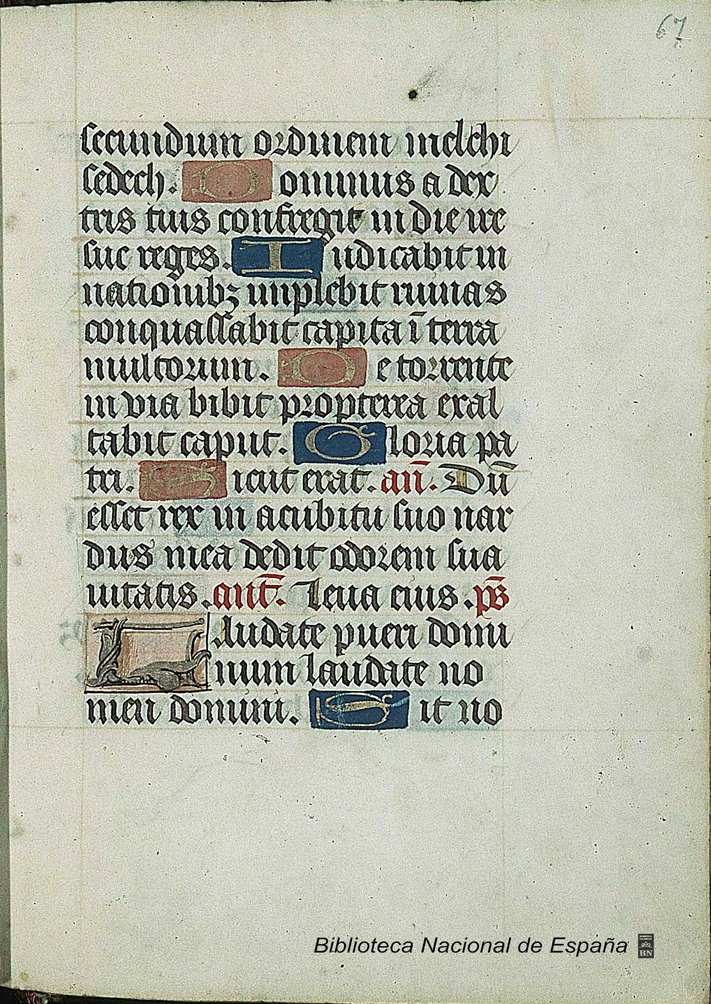 67
secundum ordinem melchi
sedech. Dominus a dex
tris tuis confregit in die ire
sue reges. Iudicabit in
nationibꝫ implebit ruinas
conquassabit capita ī terra
multorum. De torrente
in via bibit propterea exal
tabit caput. Gloria pa
tri. Sicut erat. an̄. Dū
esset rex in acubitu suo nar
dus mea dedit odorem sua
uitatis. ant̄. Leua eius. ps̄
Laudate pueri domi
num laudate no
men domini. Sit no
Biblioteca Nacional de España
BN